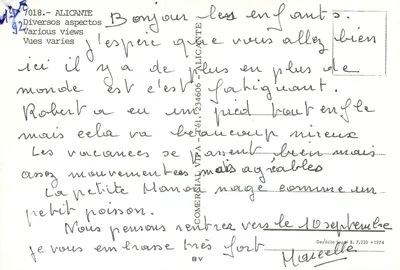 7018.- ALICANTE
Diversos aspectos
Various views
Vues varies
92
Bonjour les enfants.
J'espère que vous allez bien
ici il y a de plus en plus de
monde est c'est fatiguant.
Robert a eu un pied tout enfle
mais cela va beaucoup mieux
Les vacances se passent bien mais
assez mouvementées mais agréables
La petite Manon nage comme un
petit poisson.
Nous pensons rentrez vers le 10 septembre
je vous embrasse très fort
Marcelle
COMERCIAL VIPA - 761.*234606 - ALICANTE
Depósito legal B. 7.220 - 1974
BV